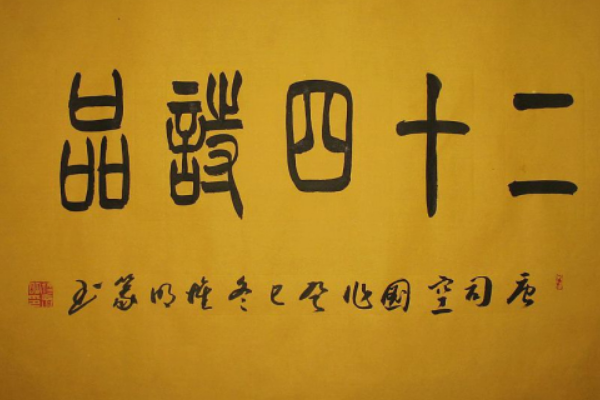 二十四詩品
唐司空圖作癸巳冬惟明篆書